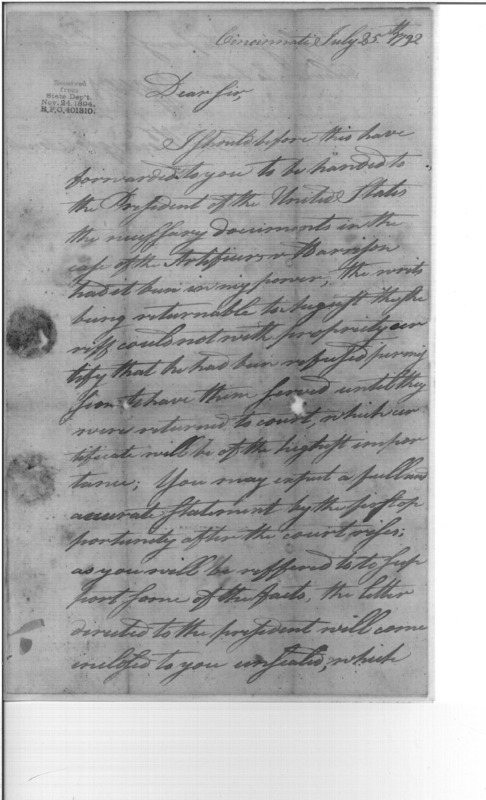 Cincinnati July 25th 1792
Received
from
State Dep't.
Nov. 24, 1894.
R.P.O. 401810.
Dear Sir
I should before this have
forwarded to you to be handed to
the President of the United States
the necessary documents in the
case of the Artificers v Harrison
had it been in my power, the writs
being returnable to August the She
riff could not with propriety cer
tify that he had been refused permis
sion to have them served until they
were returned to court, which cer
tificate will be of the highest impor
tance; You may expect a full and
accurate statement by the first op
portunity after the court rises;
as you will be reffered to to sup
port some of the facts, the letter
directed to the president will come
inclosed to you unsealed, which